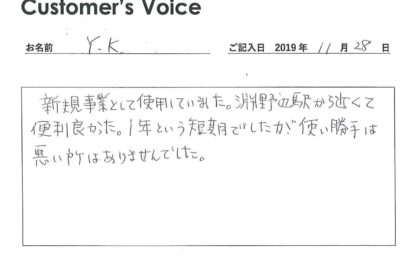 Customer's Voice
お名前 Y.K ご記入日 2019 年 11 月 28 日
新規事業として使用していました。淵野辺駅から近くて
便利良かった。1年という短期でしたが使い勝手は
悪い所はありませんでした。